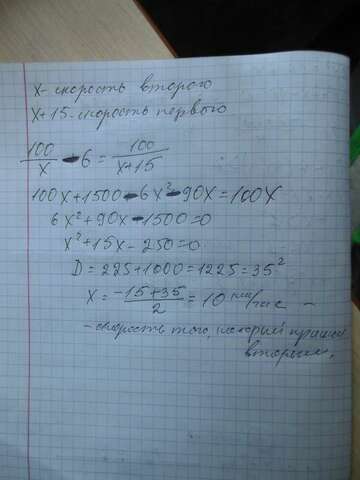 x - скорость второго
x+15 - скорость первого
100/x - 6 = 100/(x+15)
100x+1500-6x²-90x=100x
6x²+90x-1500=0
x²+15x-250=0
D=225+1000=1225=35²
x = (-15+35)/2 = 10 км/час -
- скорость того, который пришел
вторым.